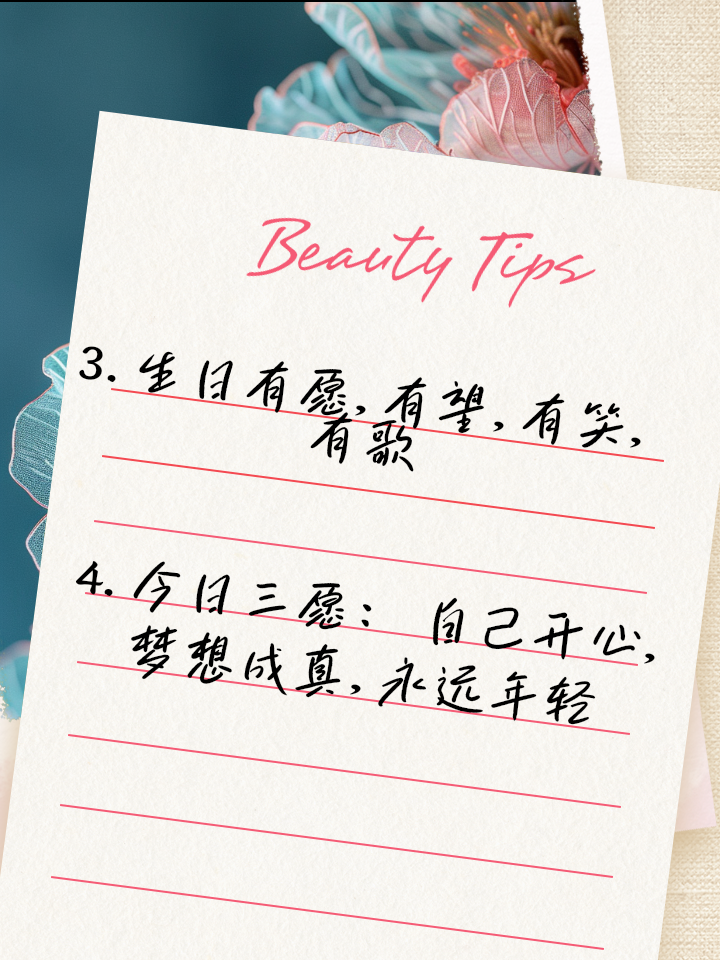 Beauty Tips
3. 生日有愿,有望,有笑,
有歌
4. 今日三愿: 自己开心,
梦想成真,永远年轻